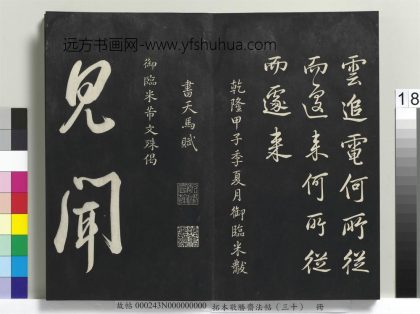 远方书画网-www.yfshuhua.com
雲追電何所從
而遽来何所從
而遂来
乾隆甲子季夏月御臨米黻
書天馬賦
御臨米芾文殊偈
見聞
18
故帖 000243N000000000 拓本敬勝齋法帖（三十） 冊